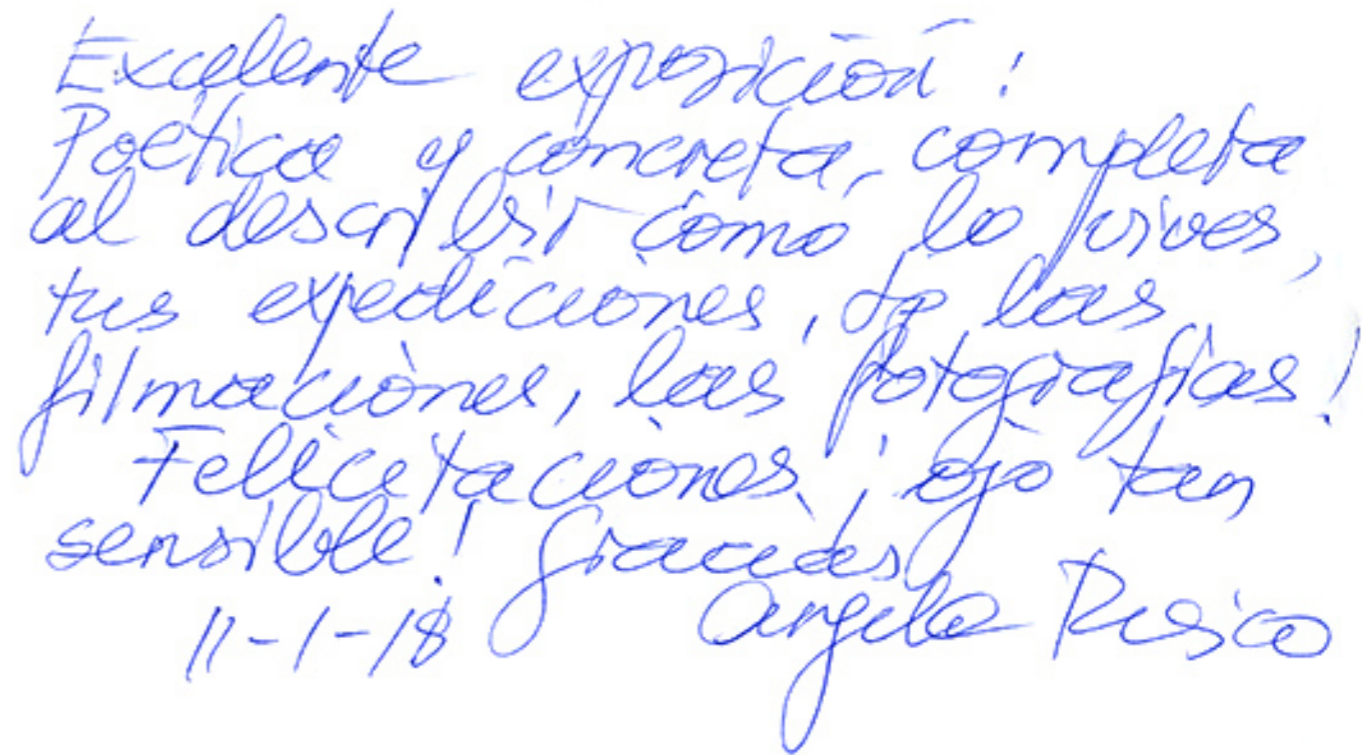 Excelente exposición!
Poética y concreta, completa
al describir como lo vives,
tus expediciones, las
filmaciones, las fotografías!
Felicitaciones, ojo tan
sensible! gracias
11-1-18 Angela